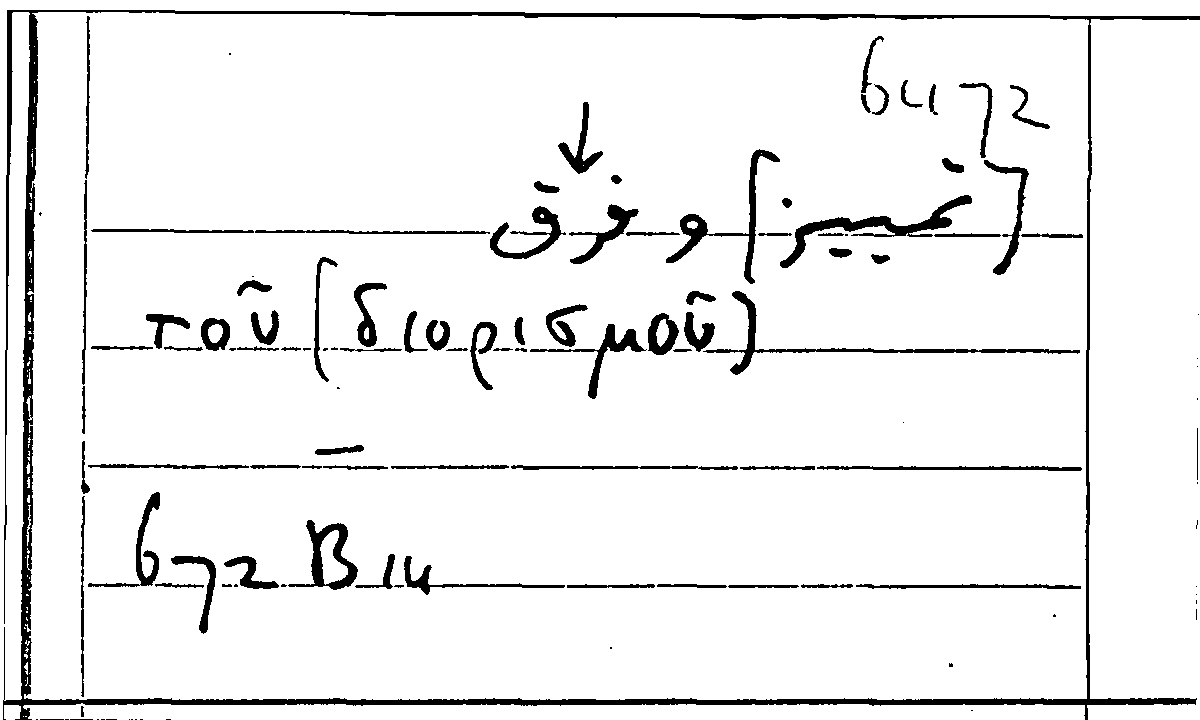 [تمييز] و فرق
↓
τοῦ [διορισμοῦ]
—
672 B 14